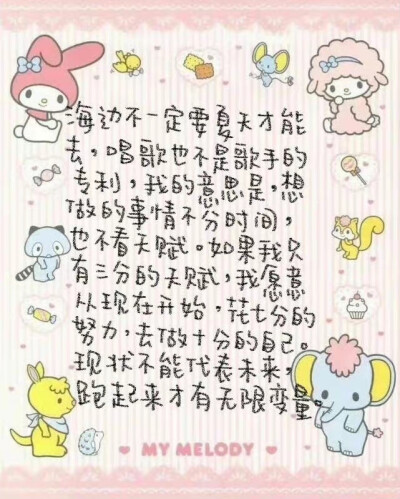 海边不一定要夏天才能
去，唱歌也不是歌手的
专利，我的意思是，想
做的事情不分时间，
也不看天赋。如果我只
有三分的天赋，我愿意
从现在开始，花七分的
努力，去做十分的自己。
现状不能代表未来，
跑起来才有无限变量。
MY MELODY